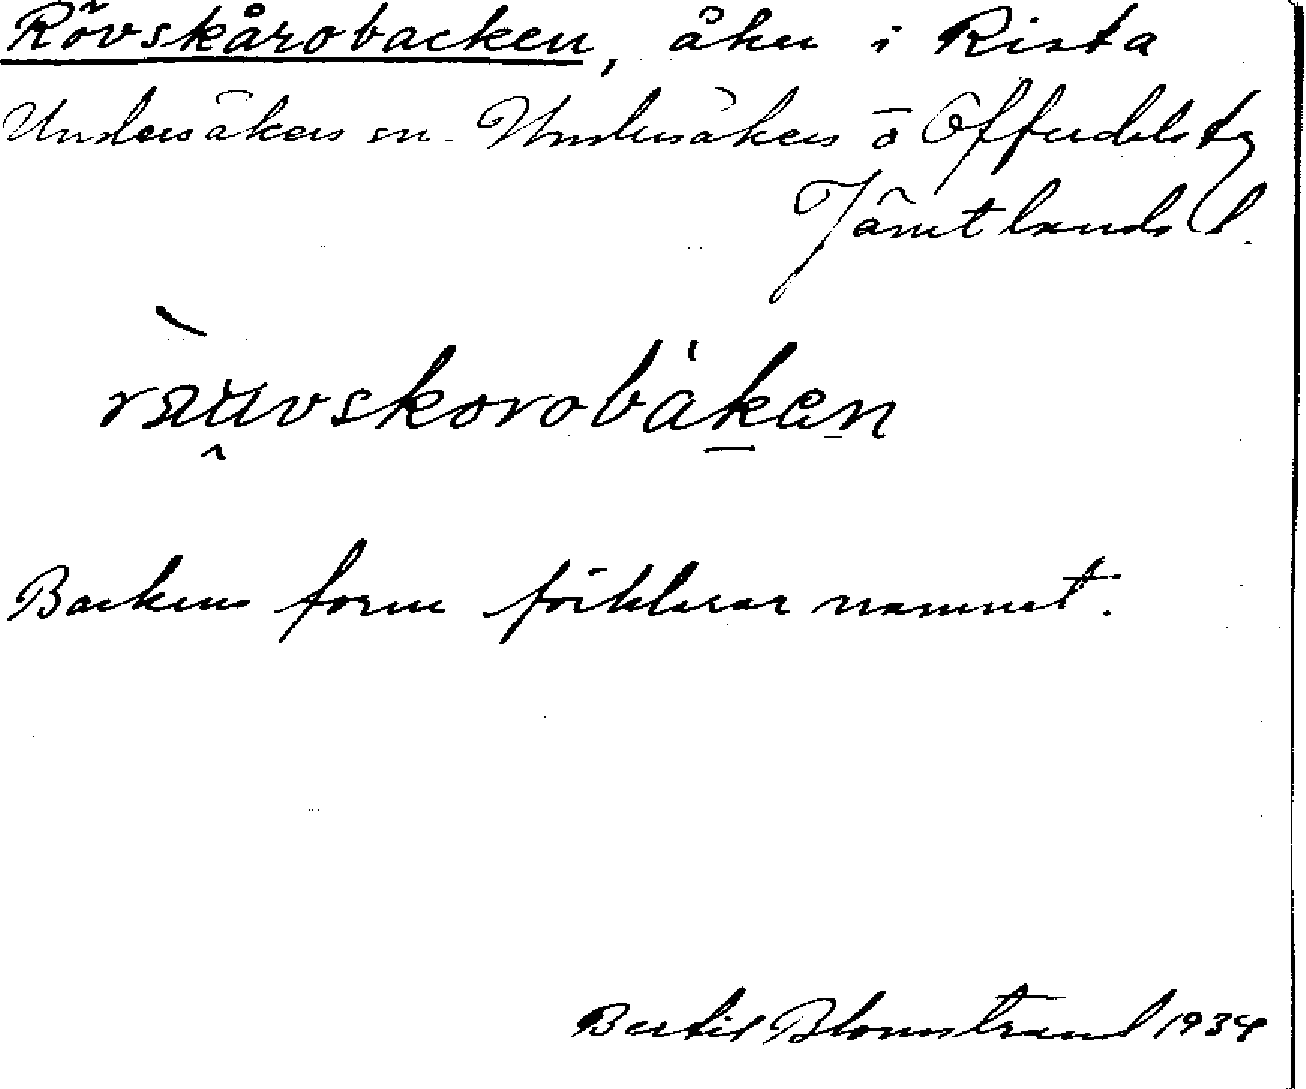 Rövskårobacken, åker i Rista
Undersåkers sn. Undersåkers o Offerdals tg
Jämtlands l.
räuvskorobàken
Backens form förklarar namnet.
Bertil Blomstrand 1934